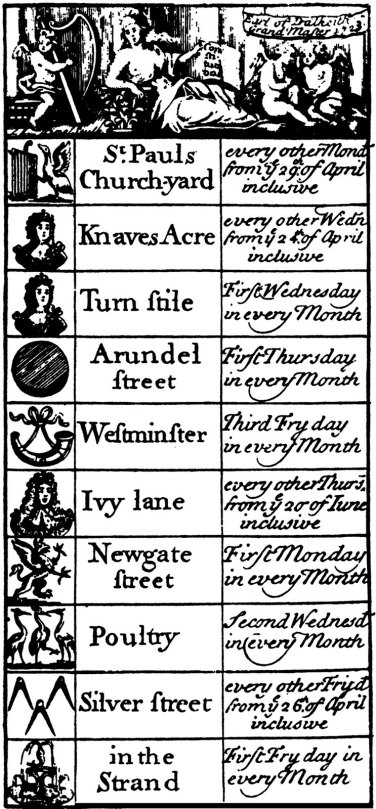 Earl of Dalkeith
Grand Master 1723
St. Pauls
Church-yard
every other Mond
from ye 29th of April
inclusive
Knaves Acre
every other Wedn
from ye 24th of April
inclusive
Turn ſtile
Firſt Wednesday
in every Month
Arundel
ſtreet
Firſt Thursday
in every Month
Weſtminſter
Third Fry day
in every Month
Ivy lane
every other Thurs.
from ye 20th of Iune
incluſive
Newgate
ſtreet
Firſt Monday
in every Month
Poultry
Second Wednesd
in every Month
Silver ſtreet
every other Fryd
from ye 26th of April
incluſive
in the
Strand
Firſt Fry day in
every Month